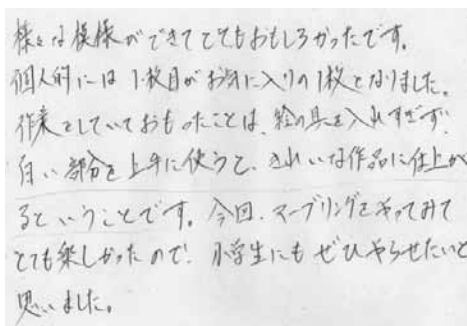 様々な模様ができてとてもおもしろかったです。
個人的には1枚目がお気に入りの1枚となりました。
作業をしていておもったことは、絵の具を入れすぎず、
白い部分を上手に使うと、きれいな作品に仕上が
るということです。今回、マーブリングをやってみて
とても楽しかったので、小学生にもぜひやらせたいと
思いました。